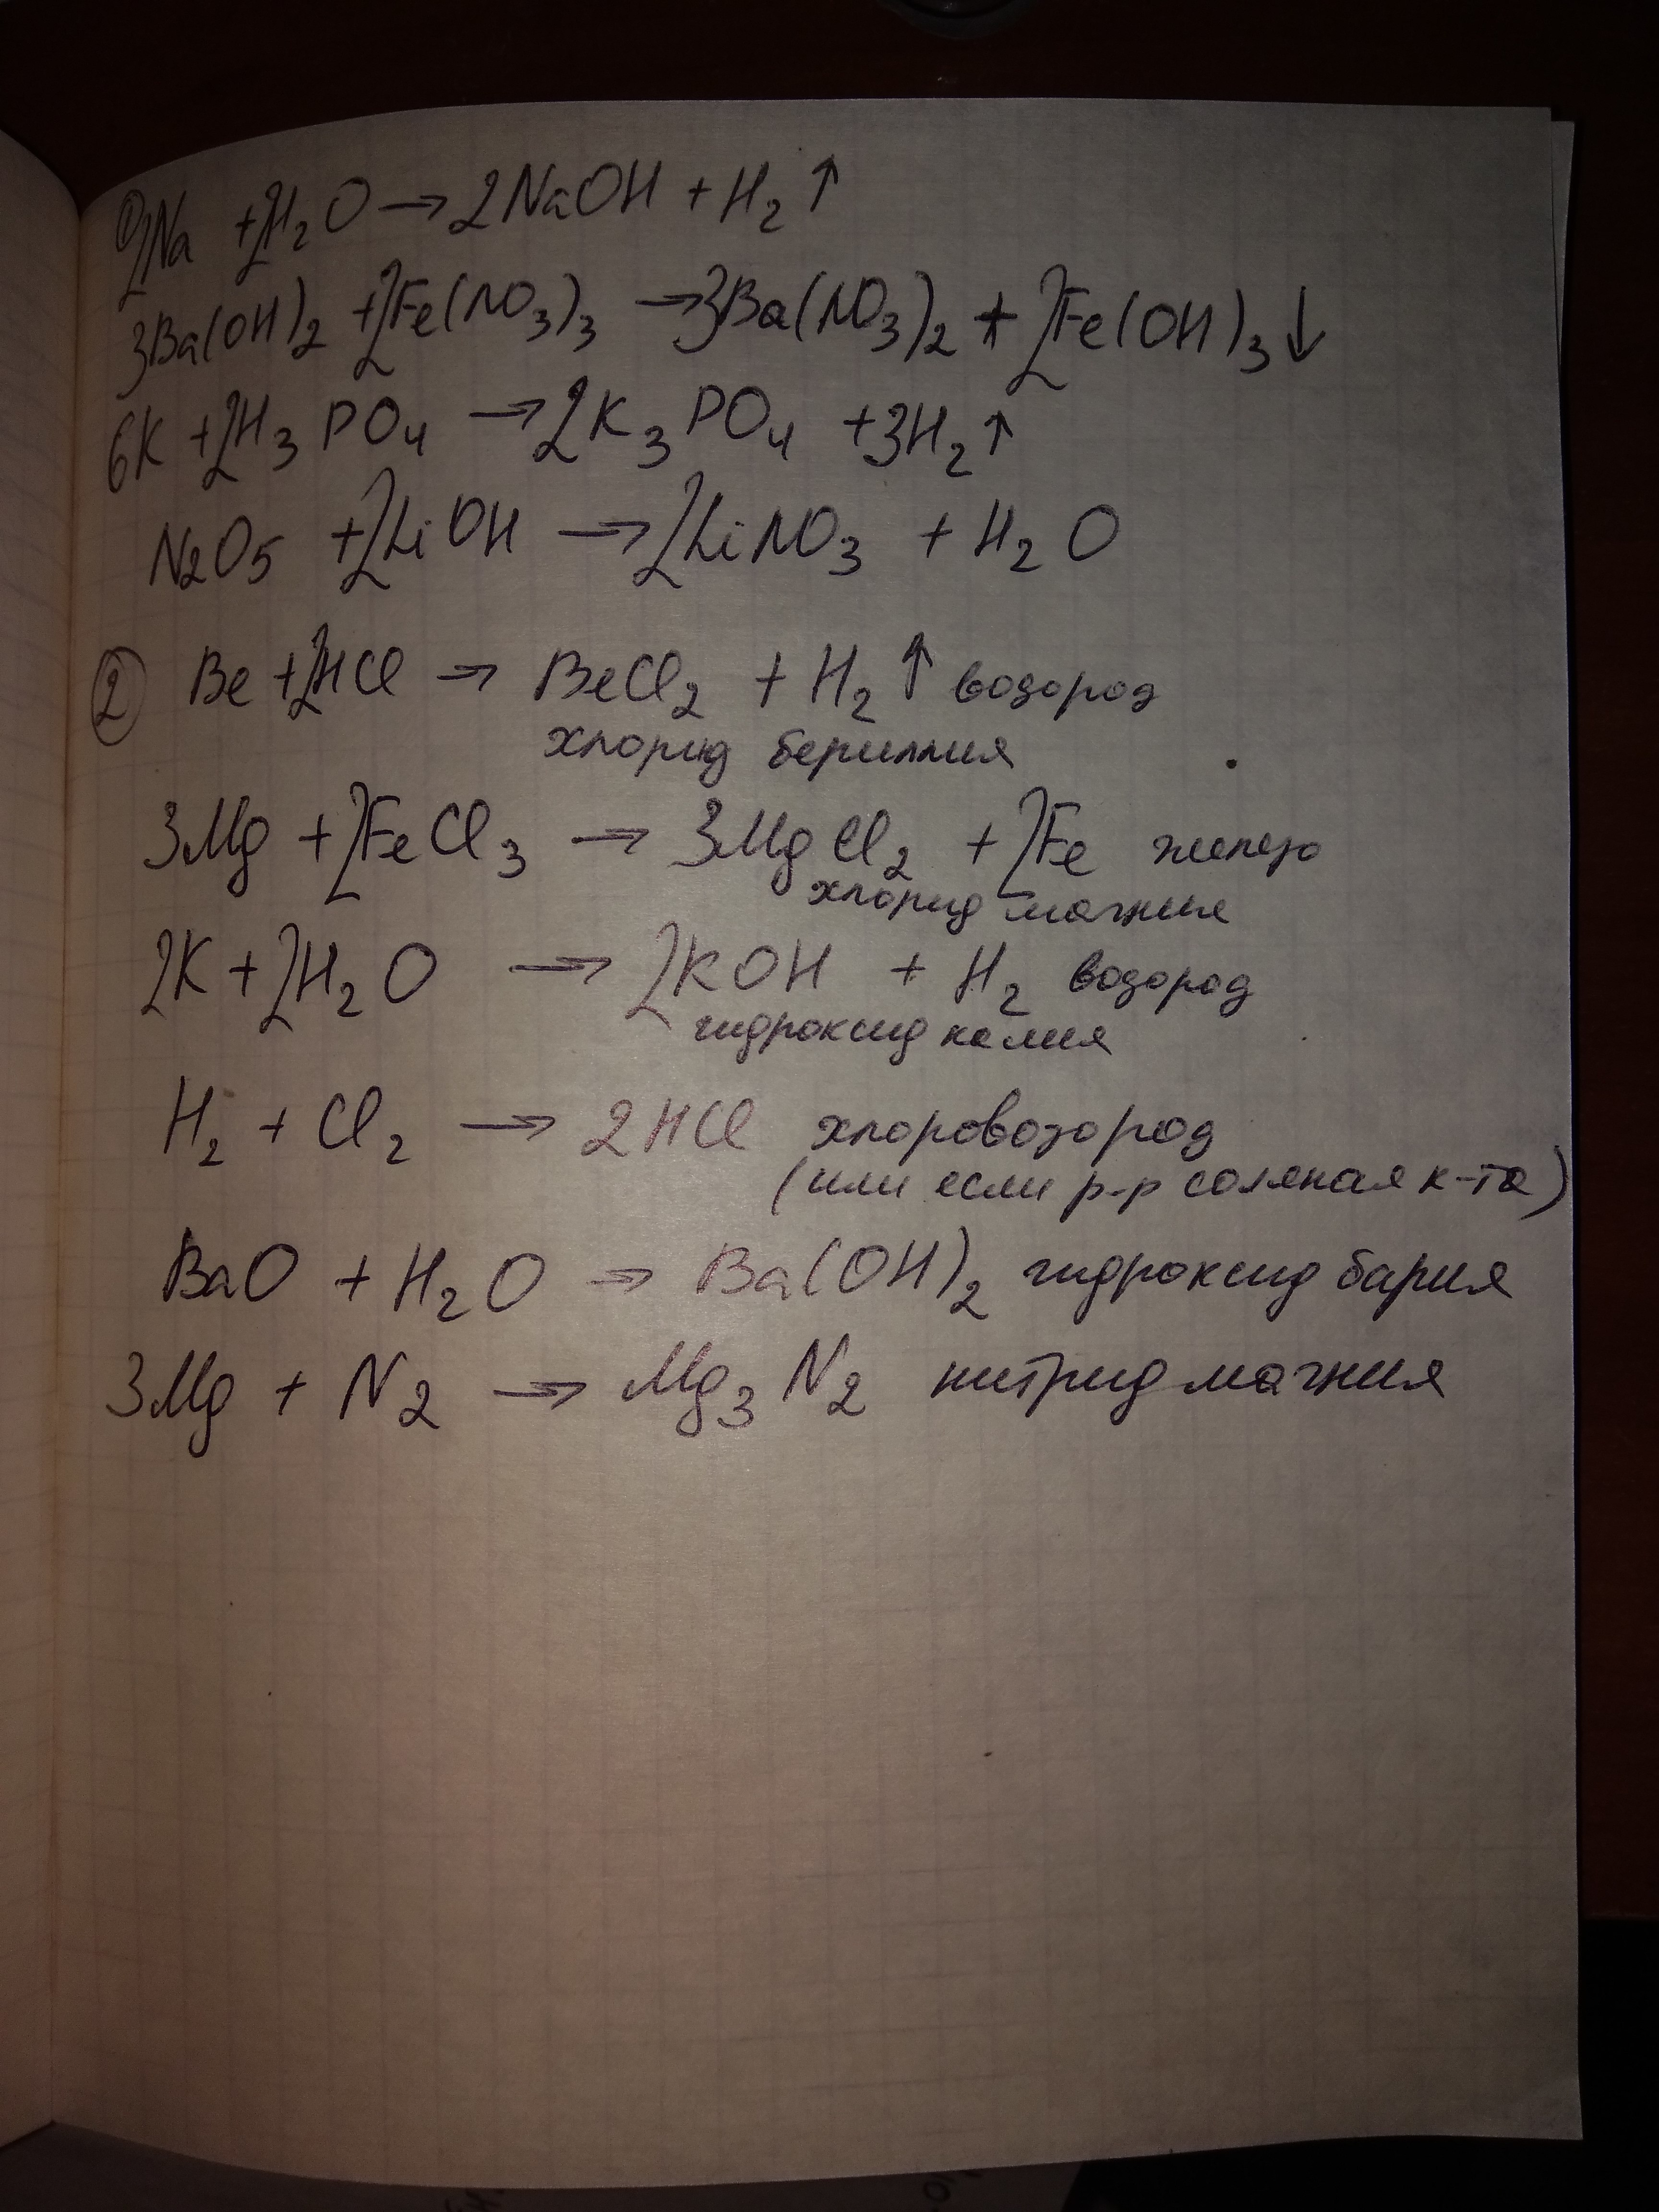 ① 2Na + 2H₂O → 2NaOH + H₂ ↑
3Ba(OH)₂ + 2Fe(NO₃)₃ → 3Ba(NO₃)₂ + 2Fe(OH)₃ ↓
6K + 2H₃PO₄ → 2K₃PO₄ + 3H₂ ↑
N₂O₅ + 2LiOH → 2LiNO₃ + H₂O
② Be + 2HCl → BeCl₂ + H₂ ↑ водород
хлорид бериллия
3Mg + 2FeCl₃ → 3MgCl₂ + 2Fe железо
хлорид магния
2K + 2H₂O → 2KOH + H₂ водород
гидроксид калия
H₂ + Cl₂ → 2HCl хлороводород
(или если р-р соляная к-та)
BaO + H₂O → Ba(OH)₂ гидроксид бария
3Mg + N₂ → Mg₃N₂ нитрид магния